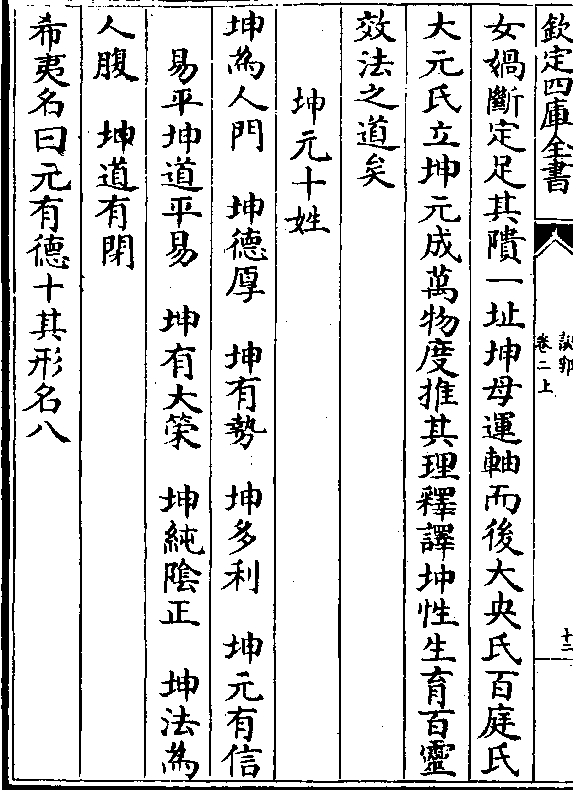 欽定四庫全書
說郛
卷二上
十二
女媧斷定足其隤一址坤母運軸而後大央氏百庭氏
大元氏立坤元成萬物度推其理釋譯坤性生育百靈
效法之道矣
坤元十姓
坤為人門　坤德厚　坤有勢　坤多利　坤元有信
易平坤道平易　坤有大策　坤純陰正　坤法為
人腹　坤道有閉
希夷名曰元有德十其形名八